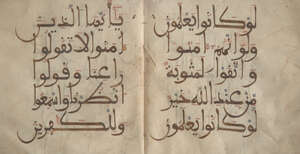 لو كانوا يعلمون
ولو انهم ءامنوا
واتقوا لمثوبة
من عند الله خير
لو كانوا يعلمون
يأيها الذين
ءامنوا لا تقولوا
راعنا وقولوا
انظرنا واسمعوا
وللكفرين